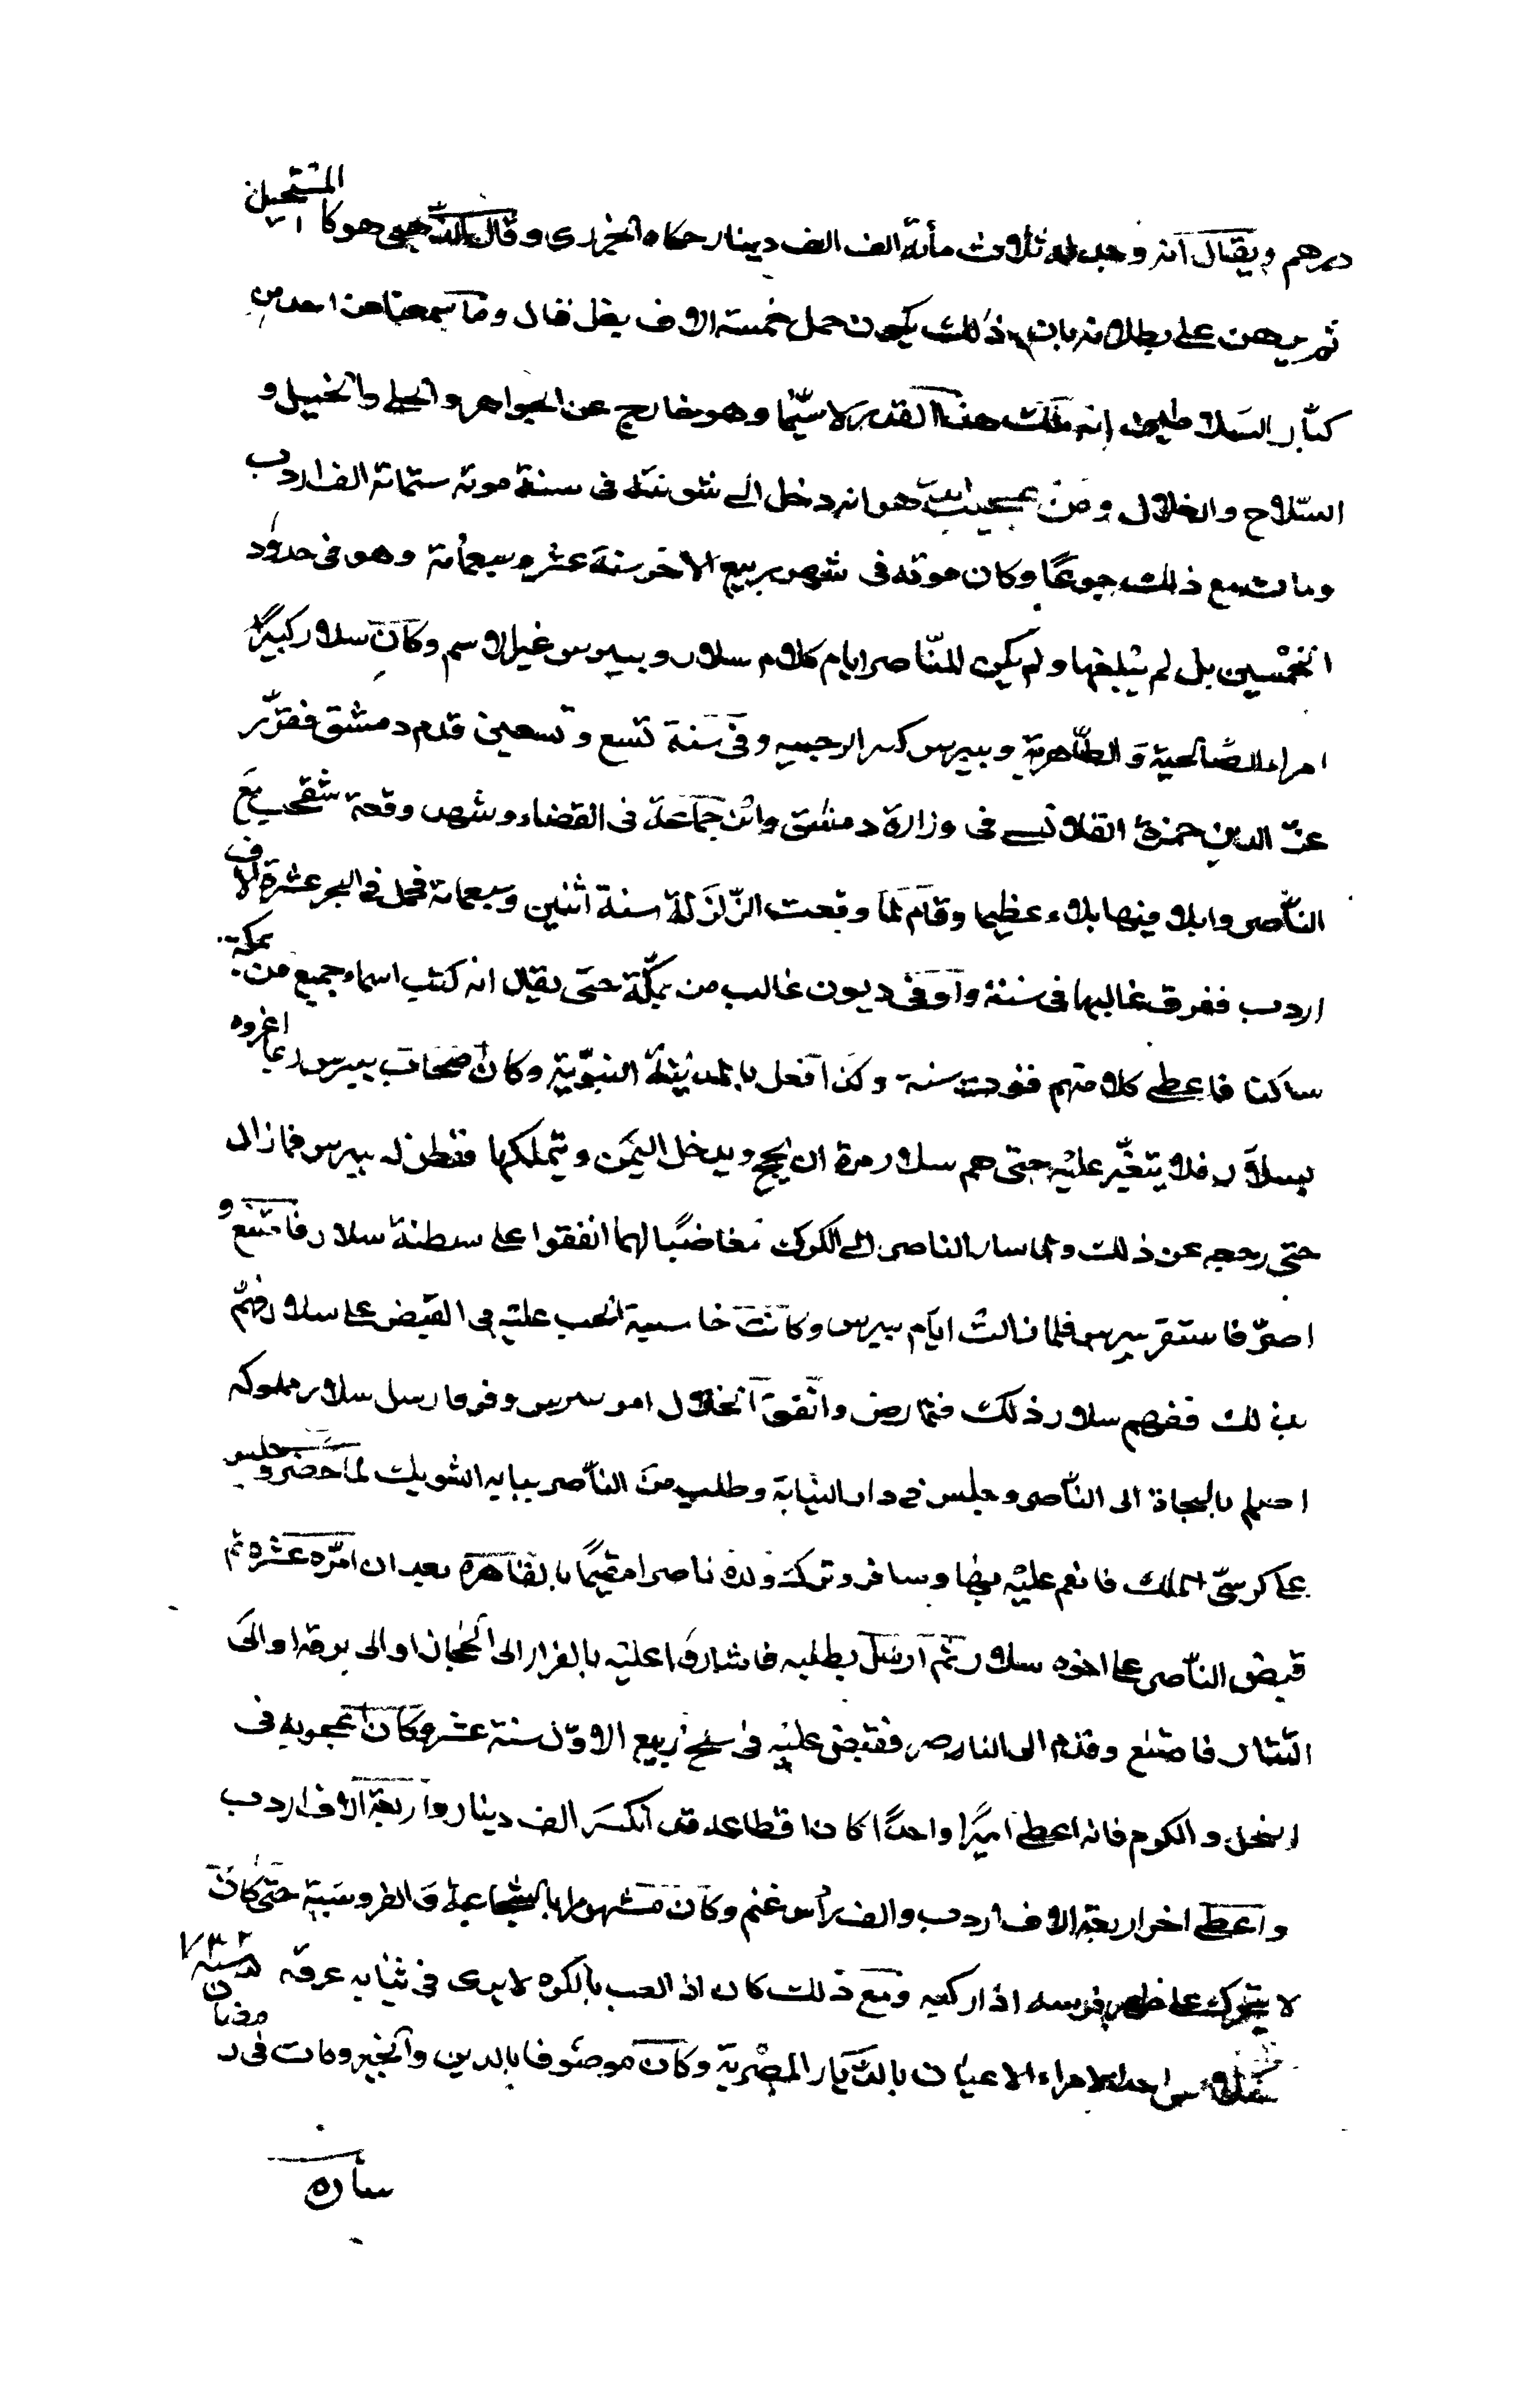 درهم ويقال انه وجد له ثلاث مأئة الف الف دينار حكاه الجزرى وقال الذهبى هو كالمستحيل
ثم برهن على بطلانه بان ذلك يكون حمل خمسة الاف بغل قال وما سمعنا عن احد من
كبار السلاطين انه ملك هذا القدر لا سيّما وهو خارج عن الجواهر والحلى والخيل و
السّلاح والغلال ومن عجيب هو انه دخل الى شونته فى سنة موته ستمائة الف اردب
ومات مع ذلك جوعًا وكان موته فى شهر ربيع الاخر سنة عشر وسبعمائة وهو فى حدود
الخمسين بل لم يبلغها ولم يكن للنّاصر ايام كلام سلار وبيبرس غير الاسم وكان سلار كبير
امراء الصّالحية والظّاهرية وبيبرس وفى سنة تسع وتسعين قدم دمشق فقرّر
عزّ الدين حمزة القلانسى فى وزارة دمشق وابن جماعة فى القضاء وشهد وقعة شقحب مع
النّاصر وابلا فيها بلاء عظيما وقام لما وقعت الزّلزلة سنة اثنين وسبعمائة فحمل فى البحر عشرة الاف
اردب ففرق غالبها فى سنة واوفى ديون غالب من بمكّة حتى يقال انه كتب اسماء جميع من بمكة
ساكنا فاعطى كلا منهم قوت سنة وكذا فعل بالمدينة النبوّية وكان اصحاب بيبرس ربما اغروه
بسلار فلا يتغيّر عليه حتى هم سلار مرة ان يحج ويدخل اليمن ويتملكها ففطن له بيبرس فما زال
حتى رجع عن ذلك ولما سار الناصر الى الكرك مغاضبًا لهما اتفقوا على سطنة سلار فامتنع و
اصرّ فاستقر بيبرس فلما زالت ايام بيبرس وكانت خاسية على القبض على سلار فهمّ
بذلك ففهم سلار ذلك فتمارض واتفق انحلال امر بيبرس وفر فارسل سلار مملوكه
اصلم بالنجاة الى النّاصر وجلس فى دار النيابة وطلب من النّاصر نيابه الشوبك لما حضر وجلس
على كرسىّ الملك فانعم عليه بها وسافر وترك ولده ناصرا مقيمًا بالقاهرة بعد ان امّره عشره ثم
قبض النّاصر على اخوه سلار ثم ارسل بطلبه فاشاروا عليه بالفرار الى الحجاز او الى برقة او الى
التتار فامتنع وقدم الى الناصر فقبض عليه فى سلخ ربيع الاوّل سنة عشر وكان اعجوبه فى
البخل والكرم فانه اعطى اميرًا واحدًا كان اقطاعه قد انكسر الف دينار واربعة الاف اردب
واعطى اخر اربعة الاف اردب والف رأس غنم وكان مشهورا بالشجاعة والفروسية حتى كان
لا يتحرك على ظهر فرسه اذا ركبه ومع ذلك كان اذا لعب بالكره لا يرى فى ثيابه عرقه
احد الامراء الاعيان بالدّيار المصرية وكان موصوفا بالدين والخير ومات فى رمضان سنة ٧٣٢